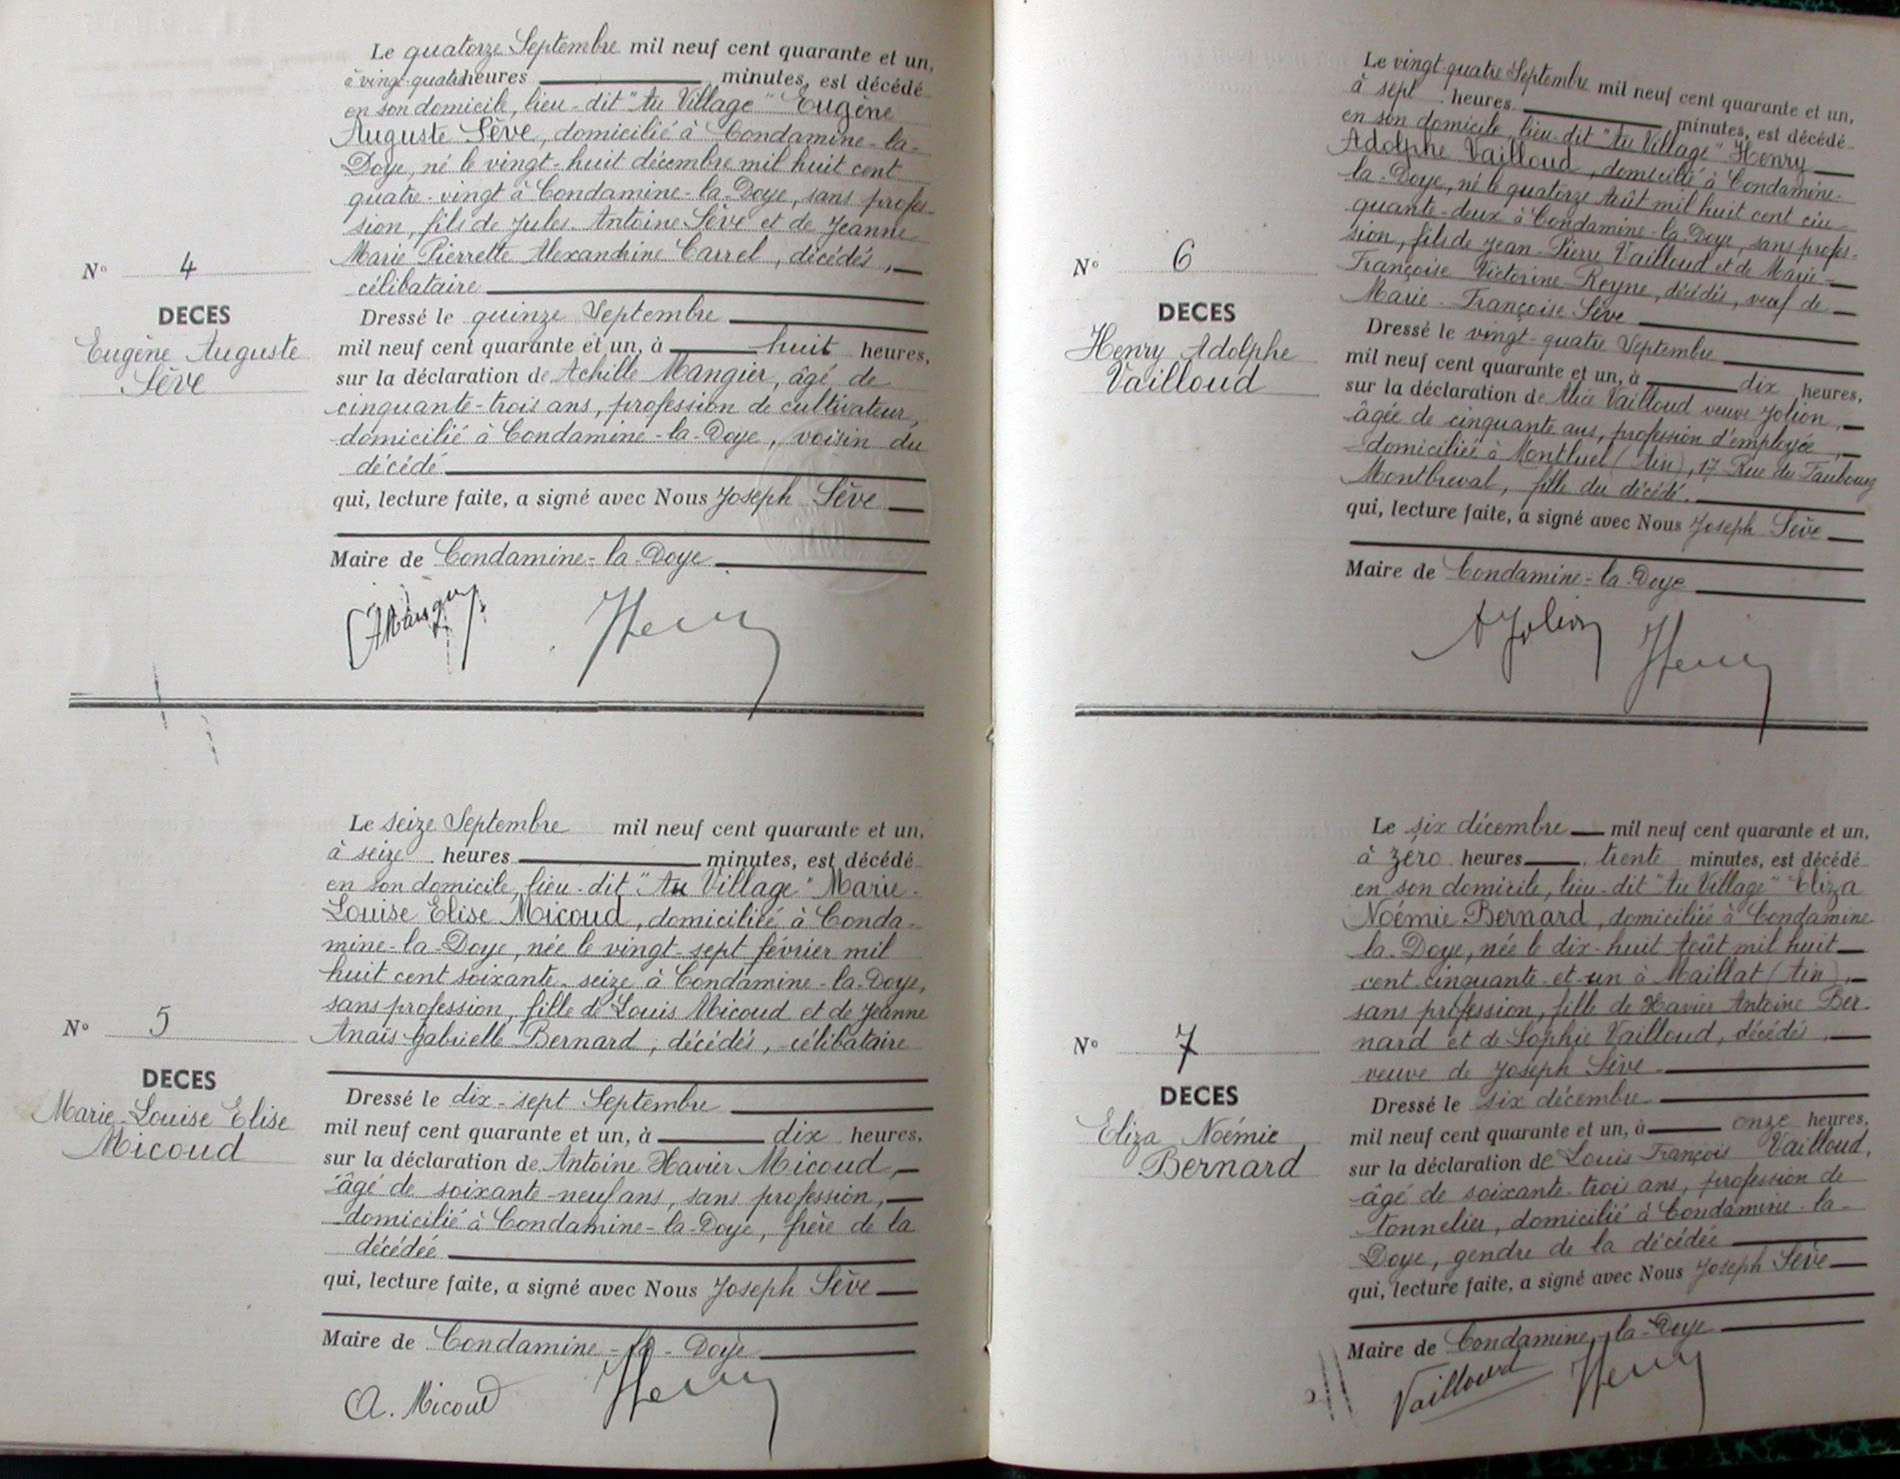 Le quatorze Septembre mil neuf cent quarante et un,
à vingt-quatre heures minutes, est décédé
en son domicile, lieu-dit "Au Village" Eugène
Auguste Sève, domicilié à Condamine-la-
Doye, né le vingt-huit décembre mil huit cent
quatre-vingt à Condamine-la-Doye, sans profes-
sion, fils de Jules Antoine Sève et de Jeanne
Marie Pierrette Alexandrine Carrel, décédés,
célibataire
N° 4
DECES
Eugène Auguste
Sève
Dressé le quinze Septembre
mil neuf cent quarante et un, à huit heures,
sur la déclaration de Achille Mangier, âgé de
cinquante-trois ans, profession de cultivateur,
domicilié à Condamine-la-Doye, voisin du
décédé
qui, lecture faite, a signé avec Nous Joseph Sève
Maire de Condamine-la-Doye
Le seize Septembre mil neuf cent quarante et un,
à seize heures minutes, est décédé
en son domicile, lieu-dit "Au Village" Marie-
Louise Elise Micoud, domiciliée à Conda-
mine-la-Doye, née le vingt-sept février mil
huit cent soixante-seize à Condamine-la-Doye,
sans profession, fille de Louis Micoud et de Jeanne
Anaïs Gabrielle Bernard, décédés, célibataire
N° 5
DECES
Marie-Louise Elise
Micoud
Dressé le dix-sept Septembre
mil neuf cent quarante et un, à dix heures,
sur la déclaration de Antoine Xavier Micoud,
âgé de soixante-neuf ans, sans profession,
domicilié à Condamine-la-Doye, frère de la
décédée
qui, lecture faite, a signé avec Nous Joseph Sève
Maire de Condamine-la-Doye
A. Micoud
Le vingt-quatre Septembre mil neuf cent quarante et un,
à sept heures minutes, est décédé
en son domicile, lieu-dit "Au Village" Henry
Adolphe Vailloud, domicilié à Condamine-
la-Doye, né le quatorze Août mil huit cent cin-
quante-deux à Condamine-la-Doye, sans profes-
sion, fils de Jean-Pierre Vailloud et de Marie-
Françoise Victorine Reyne, décédés, veuf de
Marie-Françoise Sève
N° 6
DECES
Henry Adolphe
Vailloud
Dressé le vingt-quatre Septembre
mil neuf cent quarante et un, à dix heures,
sur la déclaration de Alice Vailloud veuve Jolion,
âgée de cinquante ans, profession d'employée,
domiciliée à Montluel (Ain), 17 Rue du Faubourg
Montbreval, fille du décédé.
qui, lecture faite, a signé avec Nous Joseph Sève
Maire de Condamine-la-Doye
A Jolion
Le six décembre mil neuf cent quarante et un,
à zéro heures trente minutes, est décédé
en son domicile, lieu-dit "Au Village" Eliza
Noémie Bernard, domiciliée à Condamine
la-Doye, née le dix-huit Août mil huit
cent cinquante-et-un à Maillat (Ain),
sans profession, fille de Xavier Antoine Ber-
nard et de Sophie Vailloud, décédés,
veuve de Joseph Sève
N° 7
DECES
Eliza Noémie
Bernard
Dressé le six décembre
mil neuf cent quarante et un, à onze heures,
sur la déclaration de Louis François Vailloud,
âgé de soixante-trois ans, profession de
tonnelier, domicilié à Condamine-la-
Doye, gendre de la décédée
qui, lecture faite, a signé avec Nous Joseph Sève
Maire de Condamine-la-Doye
Vailloud